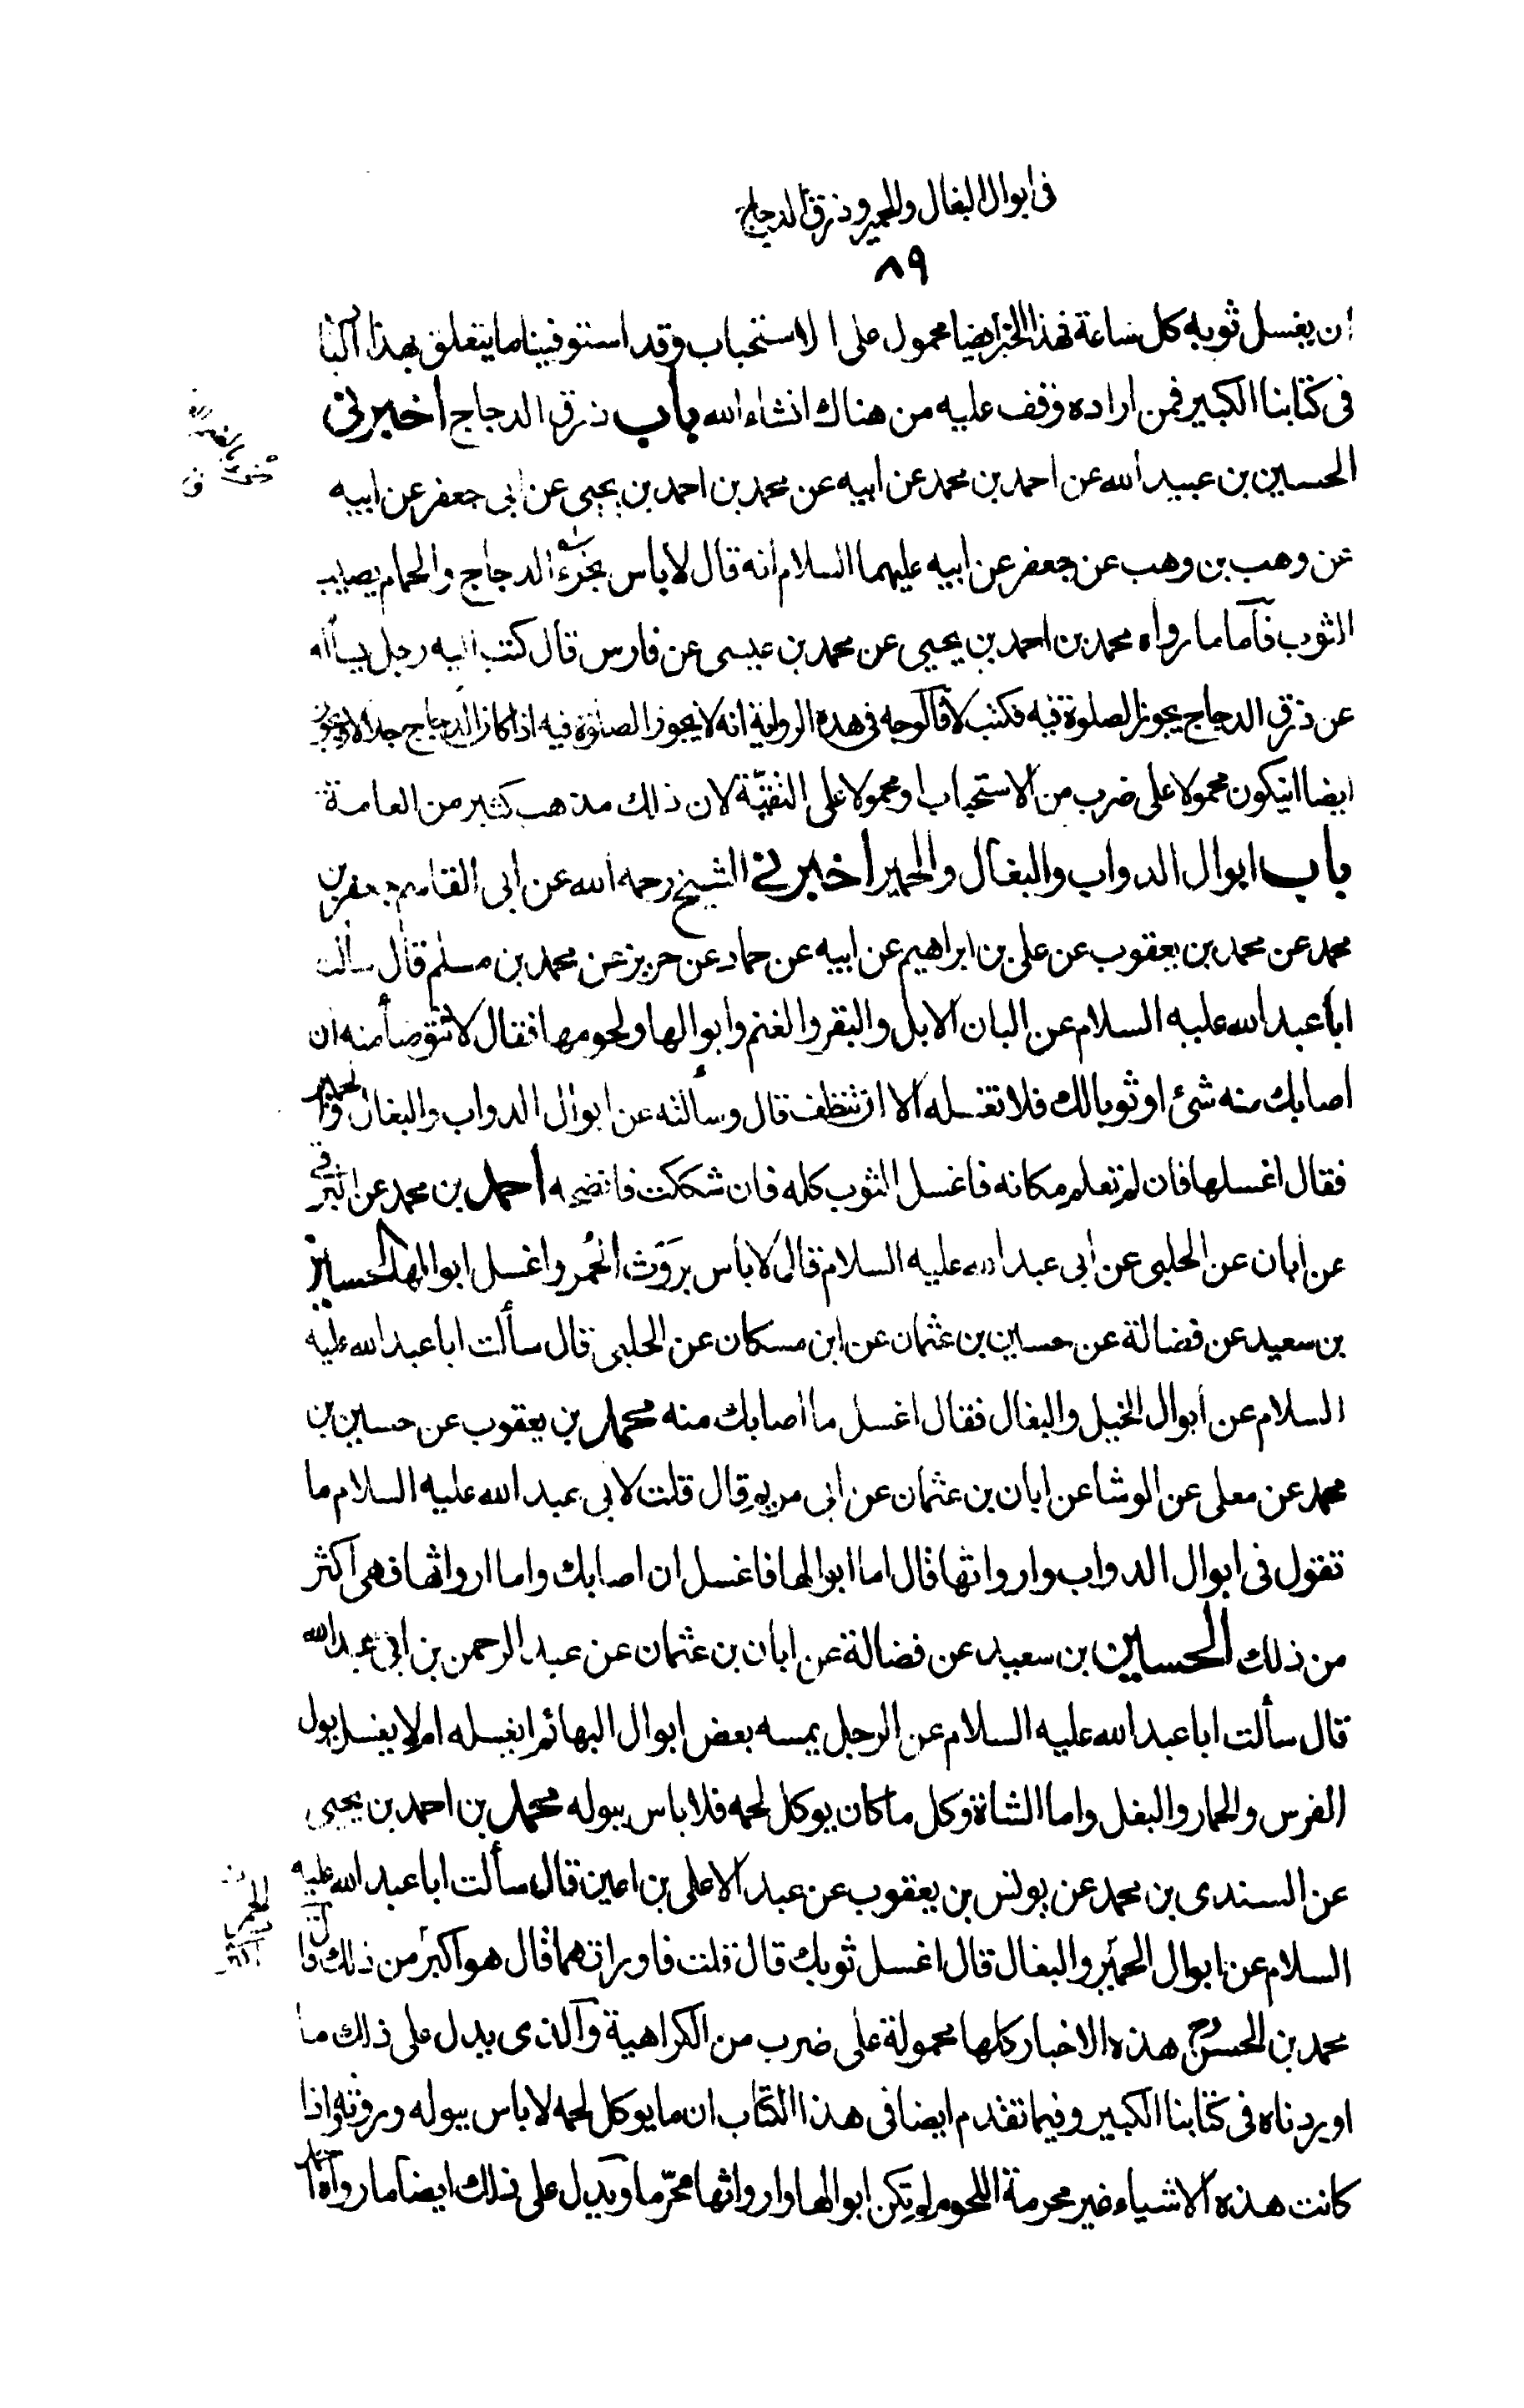 فى ابوال البغال والحمير وذرق الدجاج
٨٩
ان يغسل ثوبه كل ساعة فهذا الخبر ايضا محمول على الاستحباب وقد استوفينا ما يتعلق بهذا الباب
فى كتابنا الكبير فمن اراده وقف عليه من هناك انشاء الله باب ذرق الدجاج اخبرنى
الحسين بن عبيد الله عن احمد بن محمد عن ابيه عن محمد بن احمد بن يحيى عن ابى جعفر عن ابيه
عن وهب بن وهب عن جعفر عن ابيه عليهما السلام انه قال لا باس بخرء الدجاج والحمام يصيب
الثوب فآما ما رواه محمد بن احمد بن يحيى عن محمد بن عيسى عن فارس قال كتب اليه رجل يسأله
عن ذرق الدجاج يجوز الصلوة فيه فكتب لا فآلوجه فى هذه الرواية انه لا يجوز الصلوة فيه اذا كان الدجاج جلالا ويجوز
ايضا انيكون محمولا على ضرب من الاستحباب او محمولا على التقيّة لان ذلك مذهب كثير من العامة
باب ابوال الدواب والبغال والحمير اخبرنى الشيخ رحمه الله عن ابى القاسم جعفر بن
محمد عن محمد بن يعقوب عن على بن ابراهيم عن ابيه عن حماد عن حريز عن محمد بن مسلم قال سألت
ابا عبد الله عليه السلام عن البان الابل والبقر والغنم وابوالها ولحومها فقال لا تتوضأ منه ان
اصابك منه شئ او ثوبا لك فلا تغسله الا ان تتنظف قال وسألته عن ابوال الدواب والبغال والحمير
فقال اغسلها فان لم تعلم مكانه فاغسل الثوب كله فان شككت فانضحه احمد بن محمد عن البرقى
عن ابان عن الحلبى عن ابى عبد الله عليه السلام قال لا بأس بروث الحُمر واغسل ابوالها الحسين
بن سعيد عن فضالة عن حسين بن عثمان عن ابن مسكان عن الحلبى قال سألت ابا عبد الله عليه
السلام عن ابوال الخيل والبغال فقال اغسل ما اصابك منه محمد بن يعقوب عن حسين بن
محمد عن معلى عن الوشا عن ابان بن عثمان عن ابى مريم قال قلت لابى عبد الله عليه السلام ما
تقول فى ابوال الدواب وارواثها قال اما ابوالها فاغسل ان اصابك واما ارواثها فهى اكثر
من ذلك الحسين بن سعيد عن فضالة عن ابان بن عثمان عن عبد الرحمن بن ابى عبد الله
قال سألت ابا عبد الله عليه السلام عن الرجل يمسه بعض ابوال البهائم ايغسله ام لا يغسل بول
الفرس والحمار والبغل واما الشاة وكل ما كان يوكل لحمه فلا باس ببوله محمد بن احمد بن يحيى
عن السندى بن محمد عن يونس بن يعقوب عن عبد الاعلى بن اعين قال سألت ابا عبد الله عليه
السلام عن ابوال الحمير والبغال قال اغسل ثوبك قال قلت فاوراثهما قال هو اكبر من ذلك قال
محمد بن الحسن رح هذه الاخبار كلها محمولة على ضرب من الكراهية وآلذى يدل على ذلك ما
اوردناه فى كتابنا الكبير وفيما تقدم ايضا فى هذا الكتاب ان ما يوكل لحمه لا باس ببوله وروثه واذا
كانت هذه الاشياء غير محرمة اللحوم لم تكن ابوالها وارواثها محرّما ويدل على ذلك ايضا ما رواه احمد